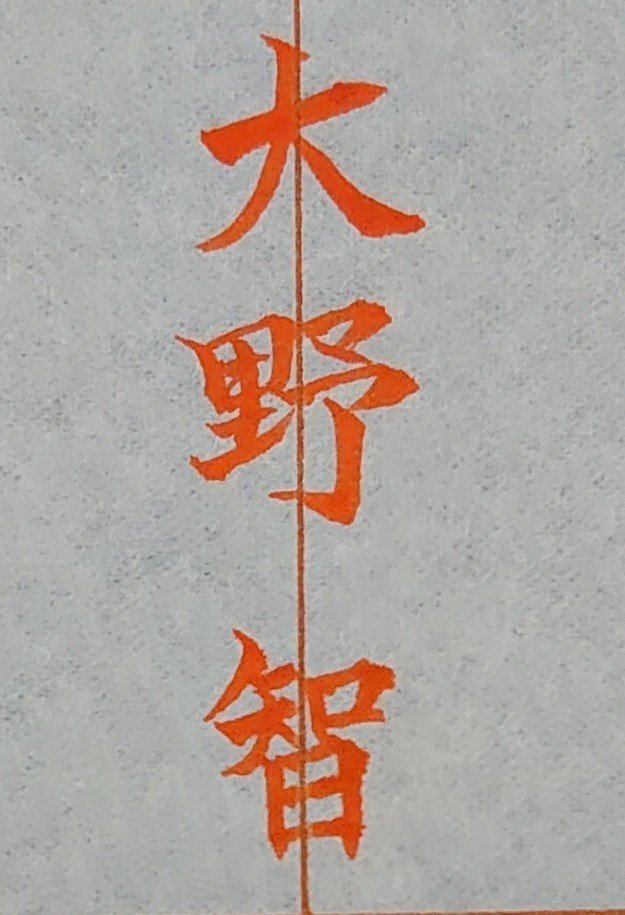 大野智